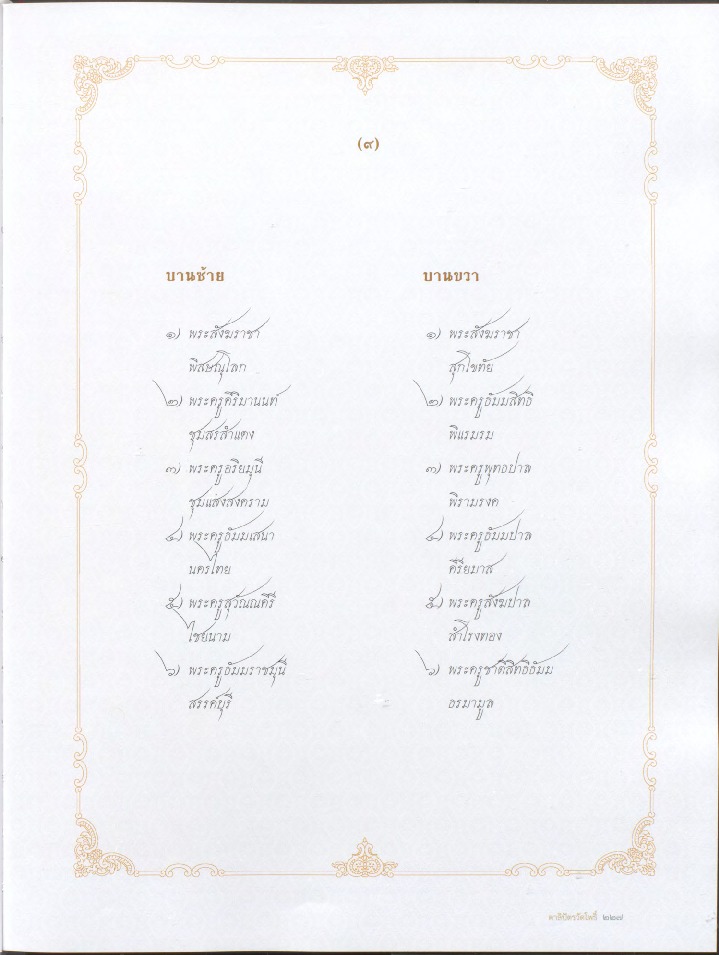 (๙)
บานซ้าย
๑) พระสังฆราชา
พิสษณุโลก
๒) พระครูคีริมานนท์
ชุมสรสำแดง
๓) พระครูอริยมุนี
ชุมแสงสงคราม
๔) พระครูธัมมเสนา
นครไทย
๕) พระครูสุวัณณคีรี
ไชยนาม
๖) พระครูธัมมราชมุนี
สรรค์บุรี
บานขวา
๑) พระสังฆราชา
สุกโขทัย
๒) พระครูธัมมสิทธิ
พิแรมรม
๓) พระครูพุทธปาล
พิรามรงค
๔) พระครูธัมมปาล
คิรียมาส
๕) พระครูสังฆปาล
สำโรงทอง
๖) พระครูชาติสิทธิธัมม
ธรมามูล
ตาลิปัตรวัดโพธิ์ ๒๒๗